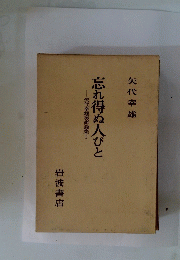 矢代幸雄
忘れ得ぬ人びと
岩波書店